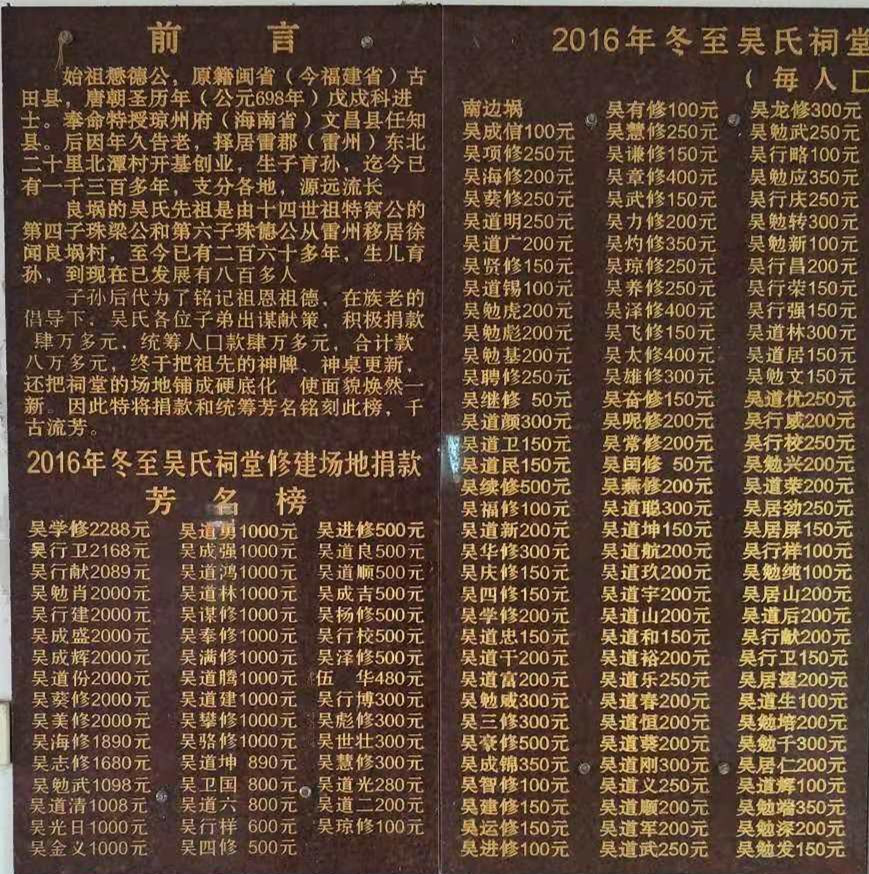 前言
始祖懋德公，原籍闽省（今福建省）古
田县，唐朝圣历年（公元698年）戊戌科进
士。奉命特授琼州府（海南省）文昌县任知
县。后因年久告老，择居雷郡（雷州）东北
二十里北潭村开基创业，生子育孙，迄今已
有一千三百多年，支分各地，源远流长
良埚的吴氏先祖是由十四世祖特窝公的
第四子珠梁公和第六子珠德公从雷州移居徐
闻良埚村，至今已有二百六十多年，生儿育
孙，到现在已发展有八百多人
子孙后代为了铭记祖恩祖德，在族老的
倡导下，吴氏各位子弟出谋献策，积极捐款
肆万多元，统筹人口款肆万多元，合计款
八万多元，终于把祖先的神牌、神桌更新，
还把祠堂的场地铺成硬底化 使面貌焕然一
新。因此特将捐款和统筹芳名铭刻此榜，千
古流芳。
2016年冬至吴氏祠堂修建场地捐款
芳名榜
吴学修2288元 吴道勇1000元 吴进修500元
吴行卫2168元 吴成强1000元 吴道良500元
吴行献2089元 吴道鸿1000元 吴道顺500元
吴勉肖2000元 吴道林1000元 吴成吉500元
吴行建2000元 吴谋修1000元 吴杨修500元
吴成盛2000元 吴奉修1000元 吴行校500元
吴成辉2000元 吴满修1000元 吴泽修500元
吴道份2000元 吴道腾1000元 伍 华480元
吴葵修2000元 吴道建1000元 吴行博300元
吴美修2000元 吴攀修1000元 吴彪修300元
吴海修1890元 吴骆修1000元 吴世壮300元
吴志修1680元 吴道坤 890元 吴慧修300元
吴勉武1098元 吴卫国 800元 吴道光280元
吴道清1008元 吴道六 800元 吴道二200元
吴光日1000元 吴行样 600元 吴琼修100元
吴金义1000元 吴四修 500元
2016年冬至吴氏祠堂
（每人口
南边埚 吴有修100元 吴龙修300元
吴成信100元 吴慧修250元 吴勉武250元
吴项修250元 吴谦修150元 吴行略100元
吴海修200元 吴章修400元 吴勉应350元
吴葵修250元 吴武修150元 吴行庆250元
吴道明250元 吴力修200元 吴勉转300元
吴道广200元 吴灼修350元 吴勉新100元
吴贤修150元 吴琼修250元 吴行昌200元
吴道锡100元 吴养修250元 吴行荣150元
吴勉虎200元 吴泽修400元 吴行强150元
吴勉彪200元 吴飞修150元 吴道林300元
吴勉基200元 吴太修400元 吴道居150元
吴聘修250元 吴雄修300元 吴勉文150元
吴继修 50元 吴奋修150元 吴道优250元
吴道颜300元 吴呢修200元 吴行威200元
吴道卫150元 吴常修200元 吴行校250元
吴道民150元 吴闰修 50元 吴勉兴200元
吴续修500元 吴燕修200元 吴道荣200元
吴福修100元 吴道聪300元 吴居劲250元
吴道新200元 吴道坤150元 吴居屏150元
吴华修300元 吴道航200元 吴行样100元
吴庆修150元 吴道玖200元 吴勉纯100元
吴四修150元 吴道宇200元 吴居山200元
吴学修200元 吴道山200元 吴道后200元
吴道忠150元 吴道和150元 吴行献200元
吴道干200元 吴道裕200元 吴行卫150元
吴道富200元 吴道乐250元 吴居望200元
吴勉威300元 吴道春200元 吴道生100元
吴三修300元 吴道恒200元 吴勉培200元
吴豪修500元 吴道葵200元 吴勉千300元
吴成锦350元 吴道刚300元 吴居仁200元
吴智修100元 吴道义250元 吴道辉100元
吴建修150元 吴道顺200元 吴勉端350元
吴运修150元 吴道军200元 吴勉深200元
吴进修100元 吴道武250元 吴勉发150元